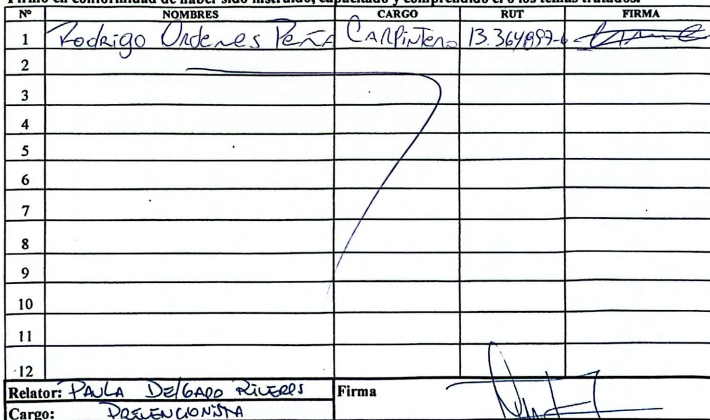 Firmo en conformidad de haber sido instruido, capacitado y comprendido el o los temas tratados.
Nº NOMBRES CARGO RUT FIRMA
1 Rodrigo Ordenes Peña CARPINTERO
2
3
4
5
6
7
8
9
10
11
12
Relator: PAULA DELGADO Firma
Cargo: PREVENCIONISTA